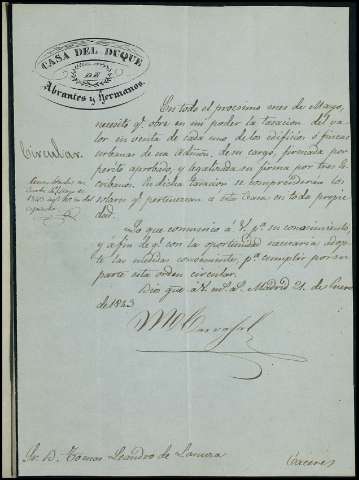 CASA DEL DUQUE
DE
Abrantes y Hermanos.
Circular.
En todo el procsimo mes de Mayo,
necesito qe. obre en mi poder la tasacion del va-
lor en venta de cada uno de los edificios ó fincas
urbanas de su admon. de su cargo, firmada por
perito aprobado, y legalizada su firma por tres Es-
cribanos. En dicha tasacion se comprenderan los
solares qe. pertenezcan a esta Casa en todo propie-
dad.
Lo que comunico á V. pa. su conocimiento,
y a fin de qe. con la oportunidad necesaria adop-
te las medidas convenientes pa. cumplir por su
parte esta orden circular.
Dios gue. á V. ms. as. Madrid 21. de Enero
de 1843
M Carvajal
Sr. D. Tomas Leandro de
Caceres